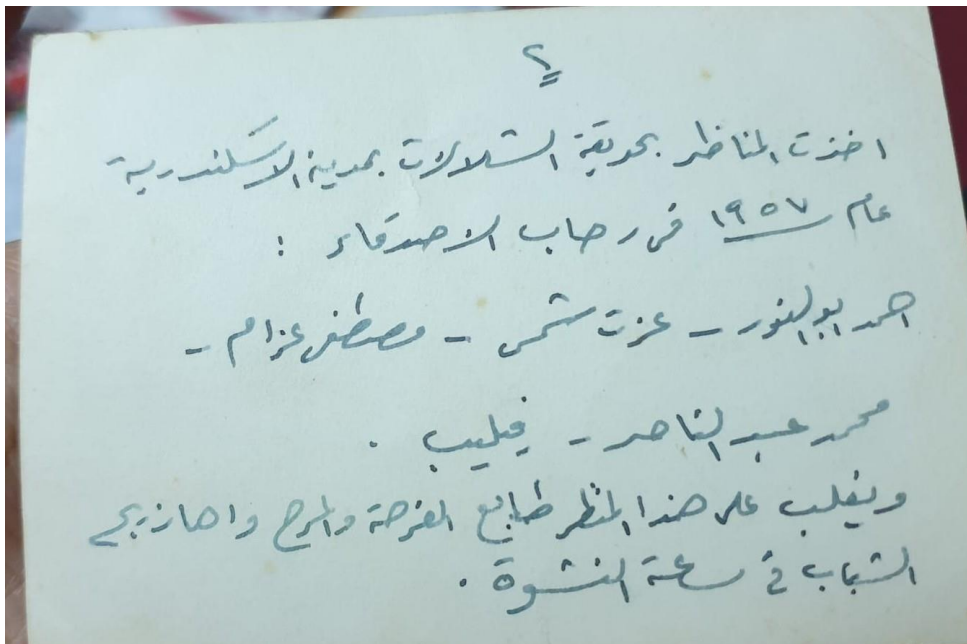 ٢
اخذت المناظر بحديقة الشلالات بمدينة الاسكندرية
عام ١٩٥٧ فى رحاب الاصدقاء :
احمد ابو النور - عزت شمس - مصطفى عزام -
محمد عبد الناصر - فيليب .
ويغلب على هذا المنظر طابع الفرحة والمرح واهازيج
الشباب فى ساعة النشوة .